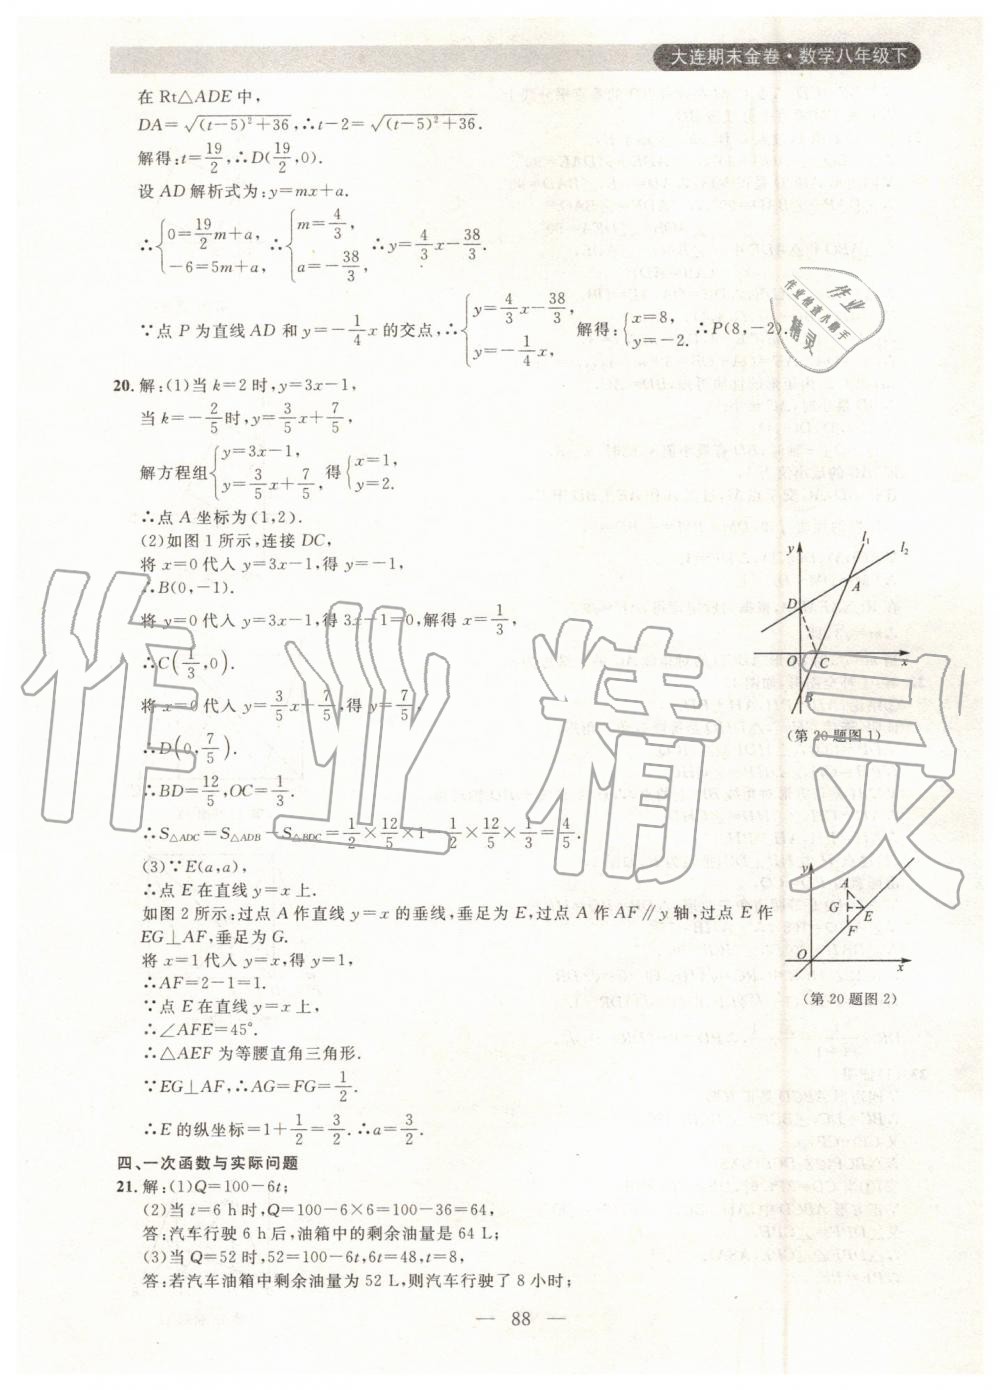 大连期末金卷·数学八年级下
在 Rt△ADE 中，
DA=√((t-5)²+36)，∴t-2=√((t-5)²+36).
解得：t=19/2，∴D(19/2,0).
设 AD 解析式为：y=mx+a.
∴{0=19/2m+a，-6=5m+a，∴{m=4/3，a=-38/3，∴y=4/3x-38/3.
∵点 P 为直线 AD 和 y=-1/4x 的交点，∴{y=4/3x-38/3，y=-1/4x，解得：{x=8，y=-2. ∴P(8,-2).
20. 解：(1)当 k=2 时，y=3x-1，
当 k=-2/5时，y=3/5x+7/5，
解方程组{y=3x-1，y=3/5x+7/5，得{x=1，y=2.
∴点 A 坐标为(1,2).
(2)如图 1 所示，连接 DC，
将 x=0 代入 y=3x-1，得 y=-1，
∴B(0,-1).
将 y=0 代入 y=3x-1，得 3x-1=0，解得 x=1/3，
∴C(1/3,0).
将 x=0 代入 y=3/5x-7/5，得 y=7/5，
∴D(0,7/5).
∴BD=12/5，OC=1/3.
∴S△ADC=S△ADB-S△BDC=1/2×12/5×1-1/2×12/5×1/3=4/5.
(3)∵E(a,a)，
∴点 E 在直线 y=x 上.
如图 2 所示：过点 A 作直线 y=x 的垂线，垂足为 E，过点 A 作 AF∥y 轴，过点 E 作
EG⊥AF，垂足为 G.
将 x=1 代入 y=x，得 y=1，
∴AF=2-1=1.
∵点 E 在直线 y=x 上，
∴∠AFE=45°.
∴△AEF 为等腰直角三角形.
∵EG⊥AF，∴AG=FG=1/2.
∴E 的纵坐标=1+1/2=3/2. ∴a=3/2.
四、一次函数与实际问题
21. 解：(1)Q=100-6t；
(2)当 t=6 h 时，Q=100-6×6=100-36=64，
答：汽车行驶 6 h 后，油箱中的剩余油量是 64 L；
(3)当 Q=52 时，52=100-6t，6t=48，t=8，
答：若汽车油箱中剩余油量为 52 L，则汽车行驶了 8 小时；
y
l₁
l₂
A
D
O
C
x
B
(第 20 题图 1)
y
A
G
E
F
O
x
(第 20 题图 2)
— 88 —
作业
作业检查小助手
精灵
作业精灵